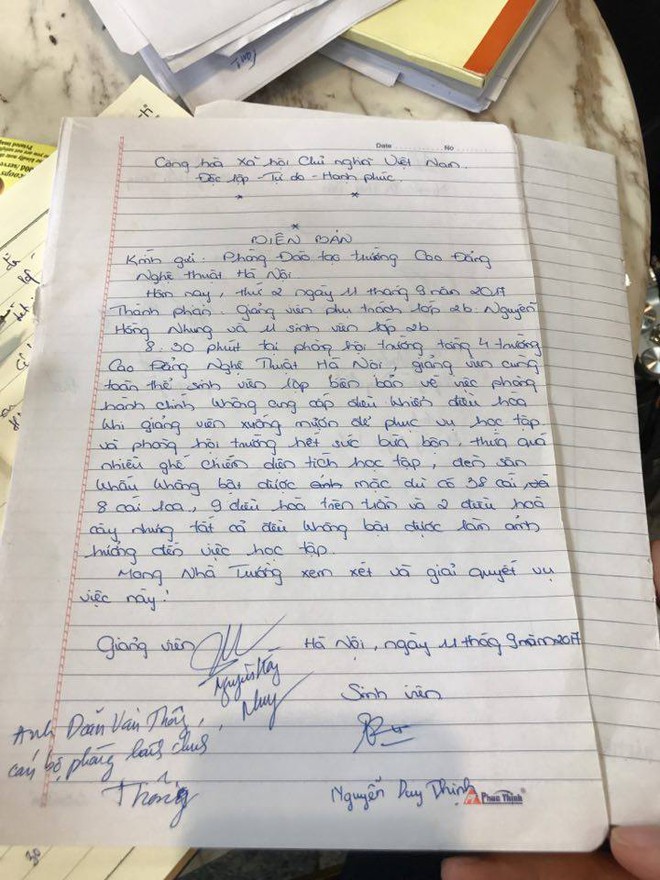 Date ........... No ......
Cộng hoà Xã hội Chủ nghĩa Việt Nam.
Độc lập - Tự do - Hạnh phúc
* *
*
BIÊN BẢN
Kính gửi: Phòng Đào tạo trường Cao Đẳng
Nghệ thuật Hà Nội
Hôm nay, thứ 2 ngày 11 tháng 9 năm 2017
Thành phần: Giảng viên phụ trách lớp 2b. Nguyễn
Hồng Nhung và 11 sinh viên lớp 2b
8.30 phút tại phòng hội trường tầng 4 trường
Cao Đẳng Nghệ Thuật Hà Nội, giảng viên cùng
toàn thể sinh viên lập biên bản về việc phòng
hành chính không cung cấp điều khiển điều hoà
khi giảng viên xuống mượn để phục vụ học tập
và phòng hội trường hết sức bừa bộn, thừa quá
nhiều ghế chiếm diện tích học tập, đèn sân
khấu không bật được mặc dù có 38 cái,
8 cái loa, 9 điều hoà trên trần và 2 điều hoà
cây nhưng tất cả đều không bật được làm ảnh
hưởng đến việc học tập.
Mong Nhà Trường xem xét và giải quyết vụ
việc này!
Giảng viên
Hà Nội, ngày 11 thág 9 năm 2017
Sinh viên
Anh Doãn Văn Thông,
cán bộ phòng hành chính
Thông
Nguyễn Duy Thịnh
Phúc Thịnh